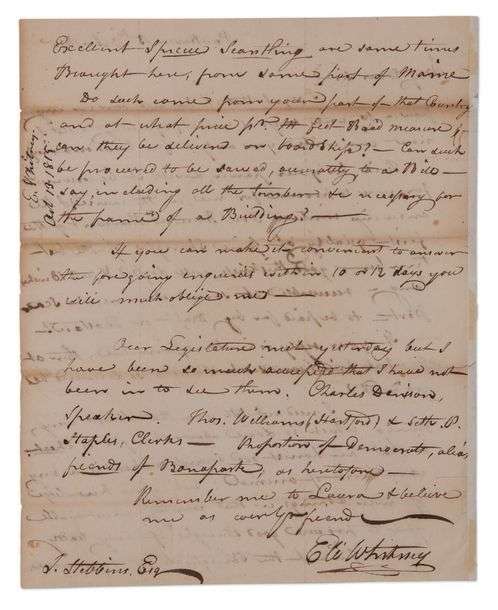 Excellent Spruce Scantling are some times
Brought here, from some part of Maine
Do such come from your part of that Country
and at what price pr. M feet Board measure
can they be delivered on board ship? — Can such
be procured to be sawed, accurately to a Bill —
say, including all the timber &c necessary for
the frame of a Building? —
If you can make it convenient to answer
the foregoing enquiries within 10 or 12 days you
will much oblige me —
Our Legislature met yesterday but I
have been so much occupied that I have not
been in to see them. Charles Denison,
Speaker. Thos. Williams (Hartford) & Seth P.
Staples, Clerks — Proportion of Democrats, alias
friends of Bonaparte, as heretofore —
Remember me to Laura & believe
me as ever yr friend
Eli Whitney
J. Stebbins, Esq
E. Whitney
Oct. 13. 1815